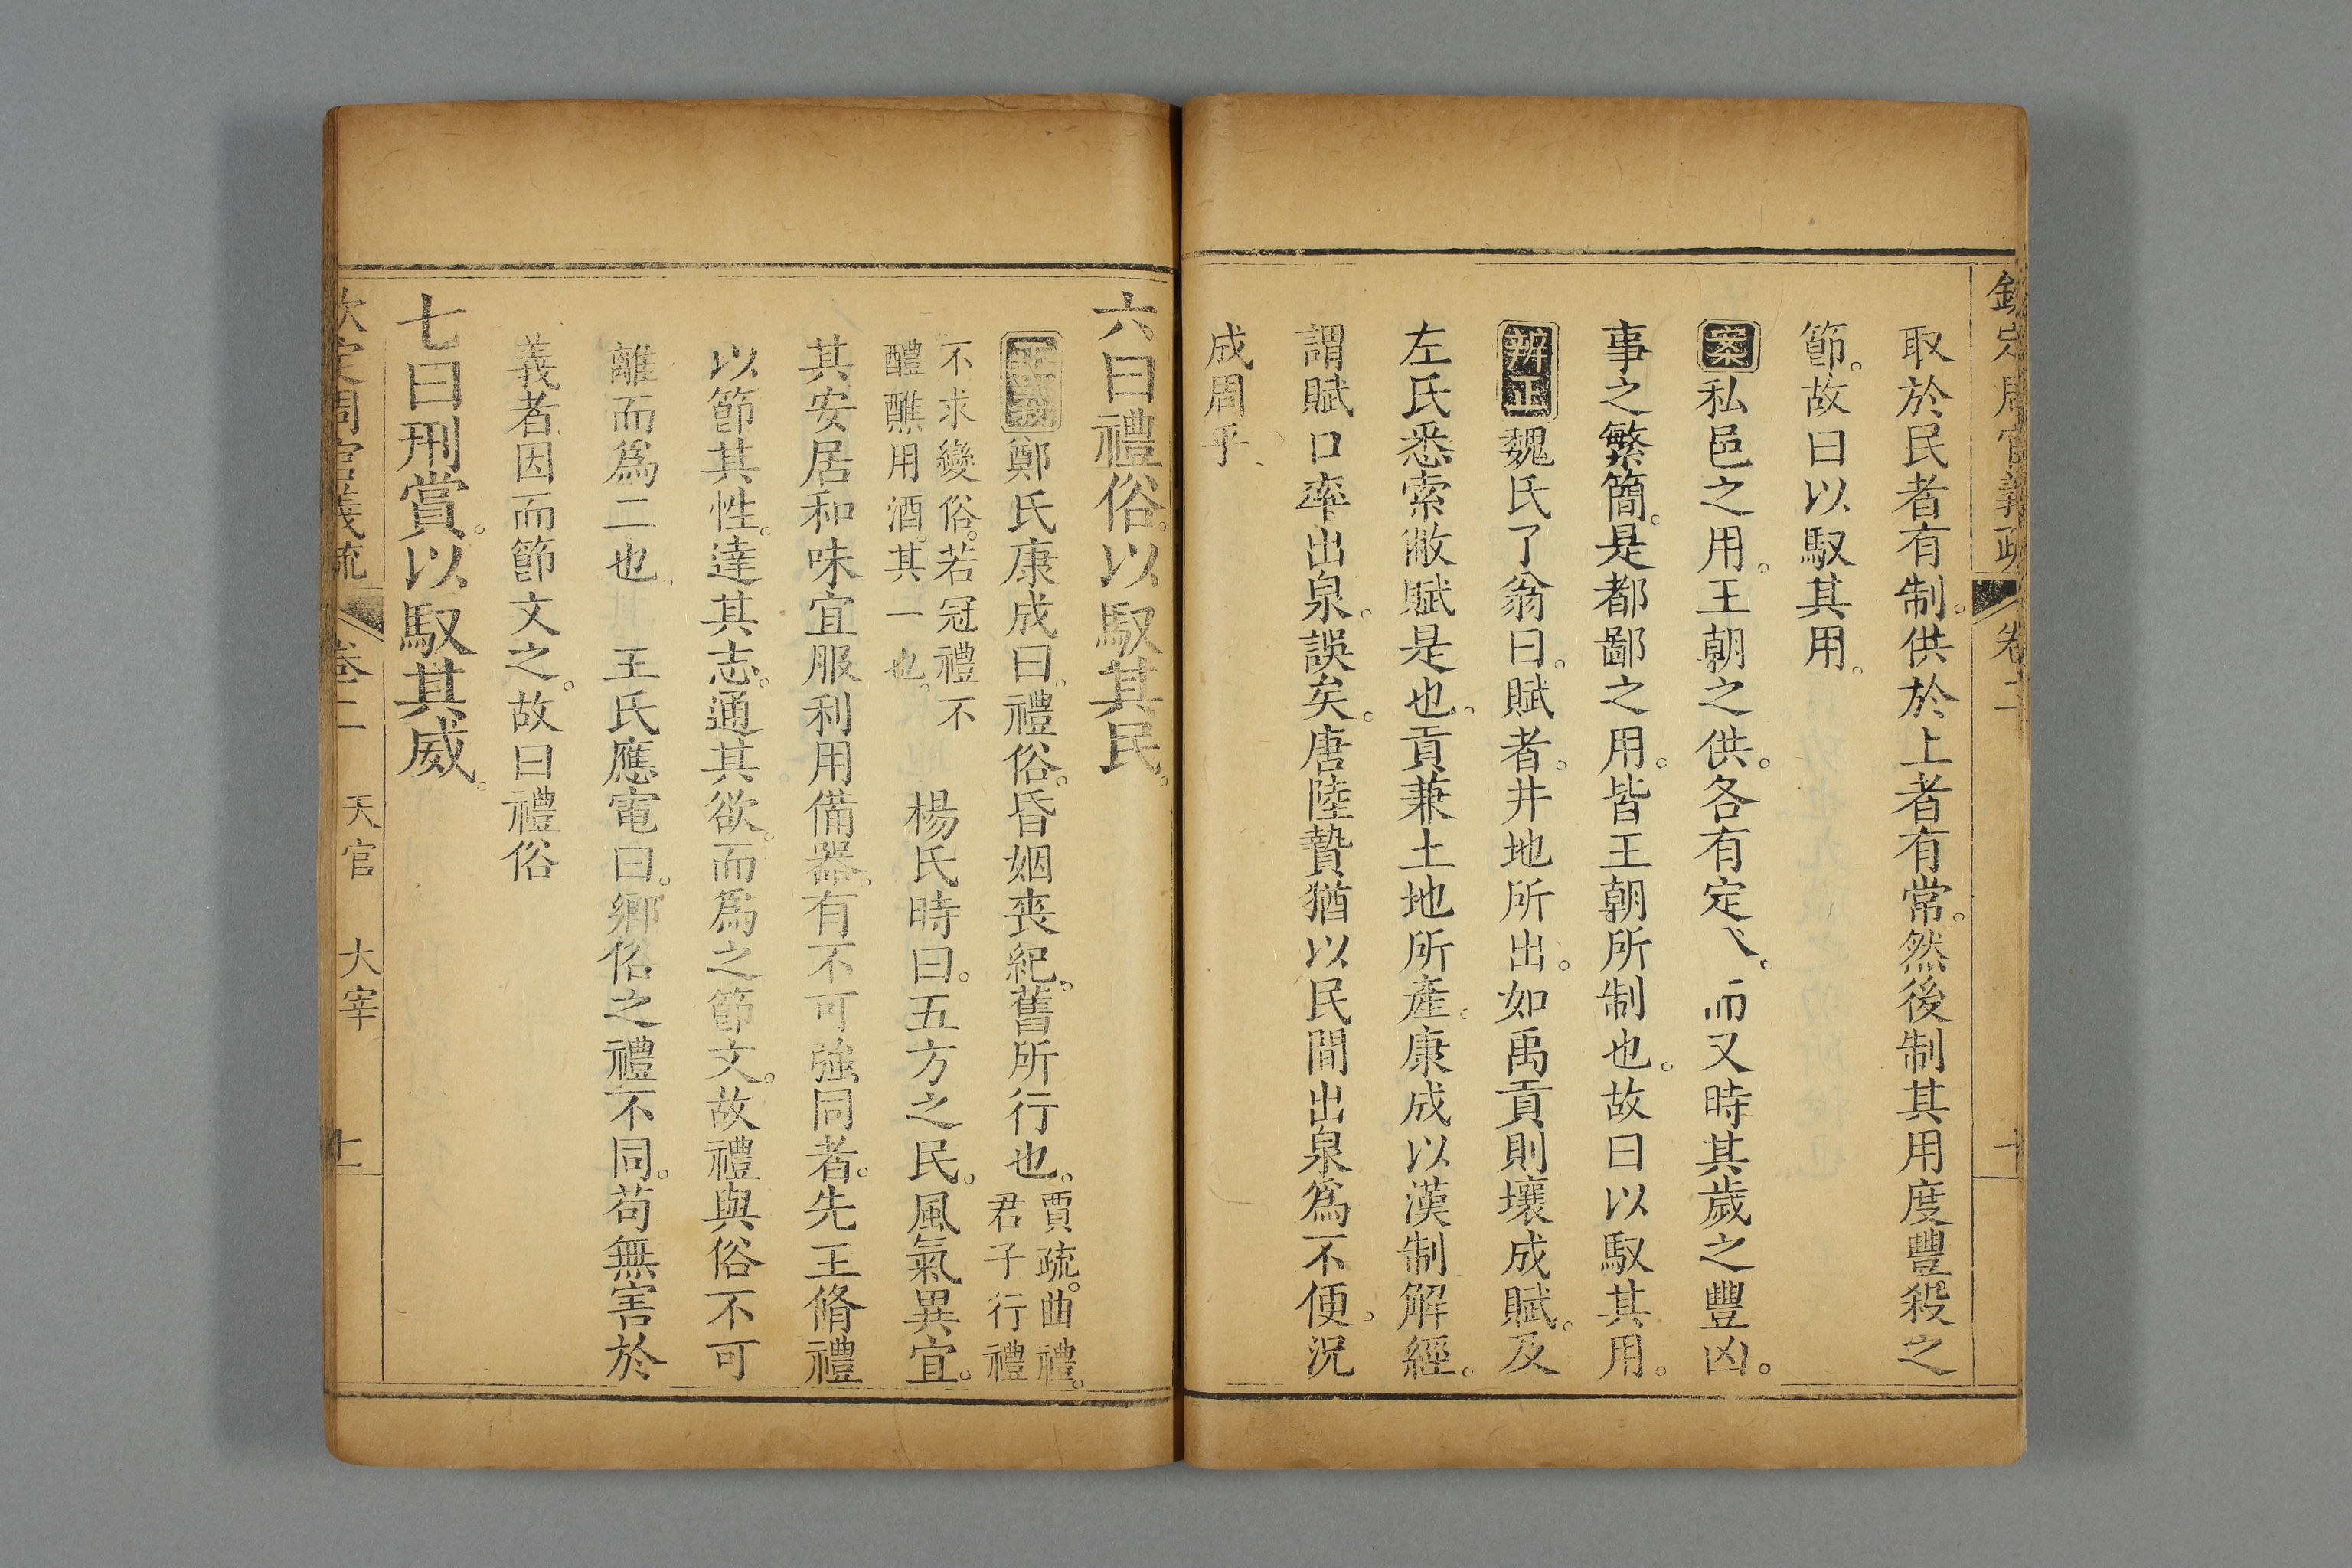 欽定周官義疏 卷二 十
取於民者有制。供於上者有常。然後制其用度豐殺之
節。故曰以馭其用。
案私邑之用。王朝之供。各有定八、而又時其歲之豐凶。
事之繁簡。是都鄙之用。皆王朝所制也。故曰以馭其用。
辨正魏氏了翁曰。賦者。井地所出。如禹貢則壤成賦。及
左氏悉索敝賦是也。貢兼土地所產。康成以漢制解經。
謂賦口率出泉。誤矣。唐陸贄猶以民間出泉為不便。況
成周乎、
六曰禮俗。以馭其民。
正義鄭氏康成曰。禮俗。昏姻喪紀。舊所行也。賈疏。曲禮。君子行禮
不求變俗。若冠禮不醴醮用酒。其一也。 楊氏時曰。五方之民。風氣異宜。
其安居和味宜服利用備器。有不可強同者。先王脩禮
以節其性。達其志。通其欲。而為之節文。故禮與俗不可
離而為二也、 王氏應電曰。鄉俗之禮不同。苟無害於
義者。因而節文之。故曰禮俗
七曰刑賞。以馭其威。
欽定周官義疏 卷二 天官 大宰 十一